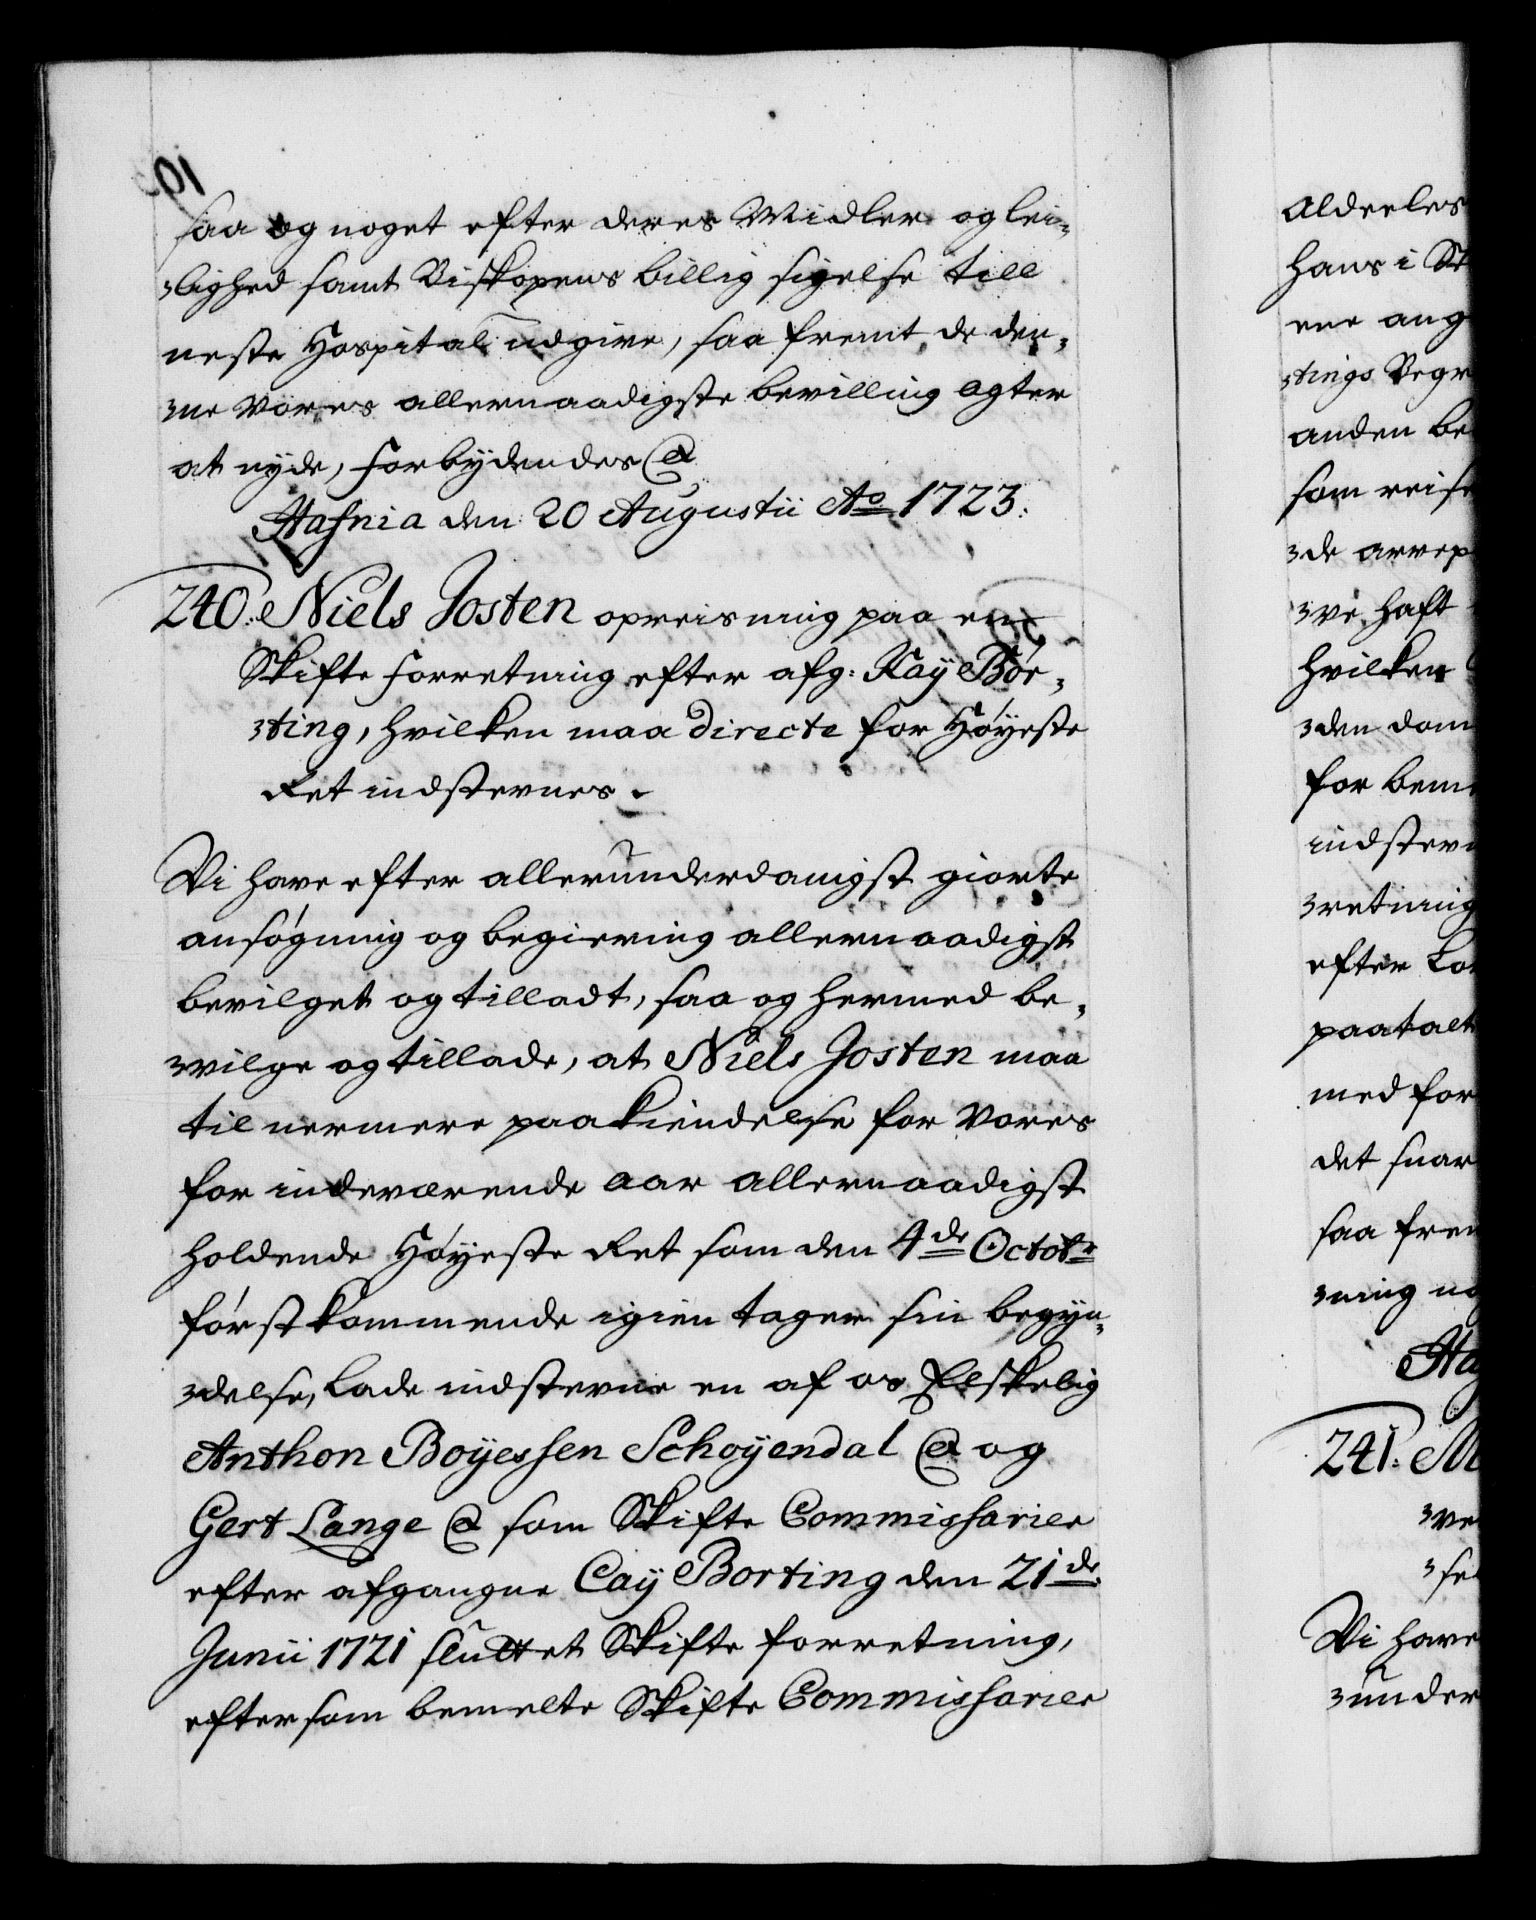 saa og noget efter deres Midler og lei-
lighed samt Biskopens billig sigelse till
neste Hospital udgive, saa fremt de den-
ne Vores allernaadigste bevilling agter
at nyde, forbydendes &
Hafnia den 20 Augustii Ao 1723.
240: Niels Josten opreisning paa en
Skifte forretning efter afg: Kay Bor-
ting, hvilken maa directe for Høyeste
Ret indstevnes.
Vi have efter allerunderdanigst giorte
ansøgning og begiering allernaadigst
bevilget og tilladt, saa og hermed be-
vilge og tillade, at Niels Josten maa
til nermere paakiendelse for Vores
for indeværende aar allernaadigst
holdende Høyeste Ret som den 4de Octobr
førstkommende igien tager sin begyn-
delse, lade indstevne en af os Elskelig
Anthon Boyessen Schoyendal & og
Gert Lange & som Skifte Commissarier
efter afgangne Cay Borting den 21de
Junii 1721 sluttet Skifte forretning,
eftersom bemelte Skifte Commissarier
aldeeles
hans i
ene ang
tings Begr
anden be
som reise
de arvep
ve haft
hvilken
den dom
for beme
indstevn
retning
efter Lov
paatalt
med for
det snar
saa frem
ning no
Haf
241: M
ve
se
Vi have
under